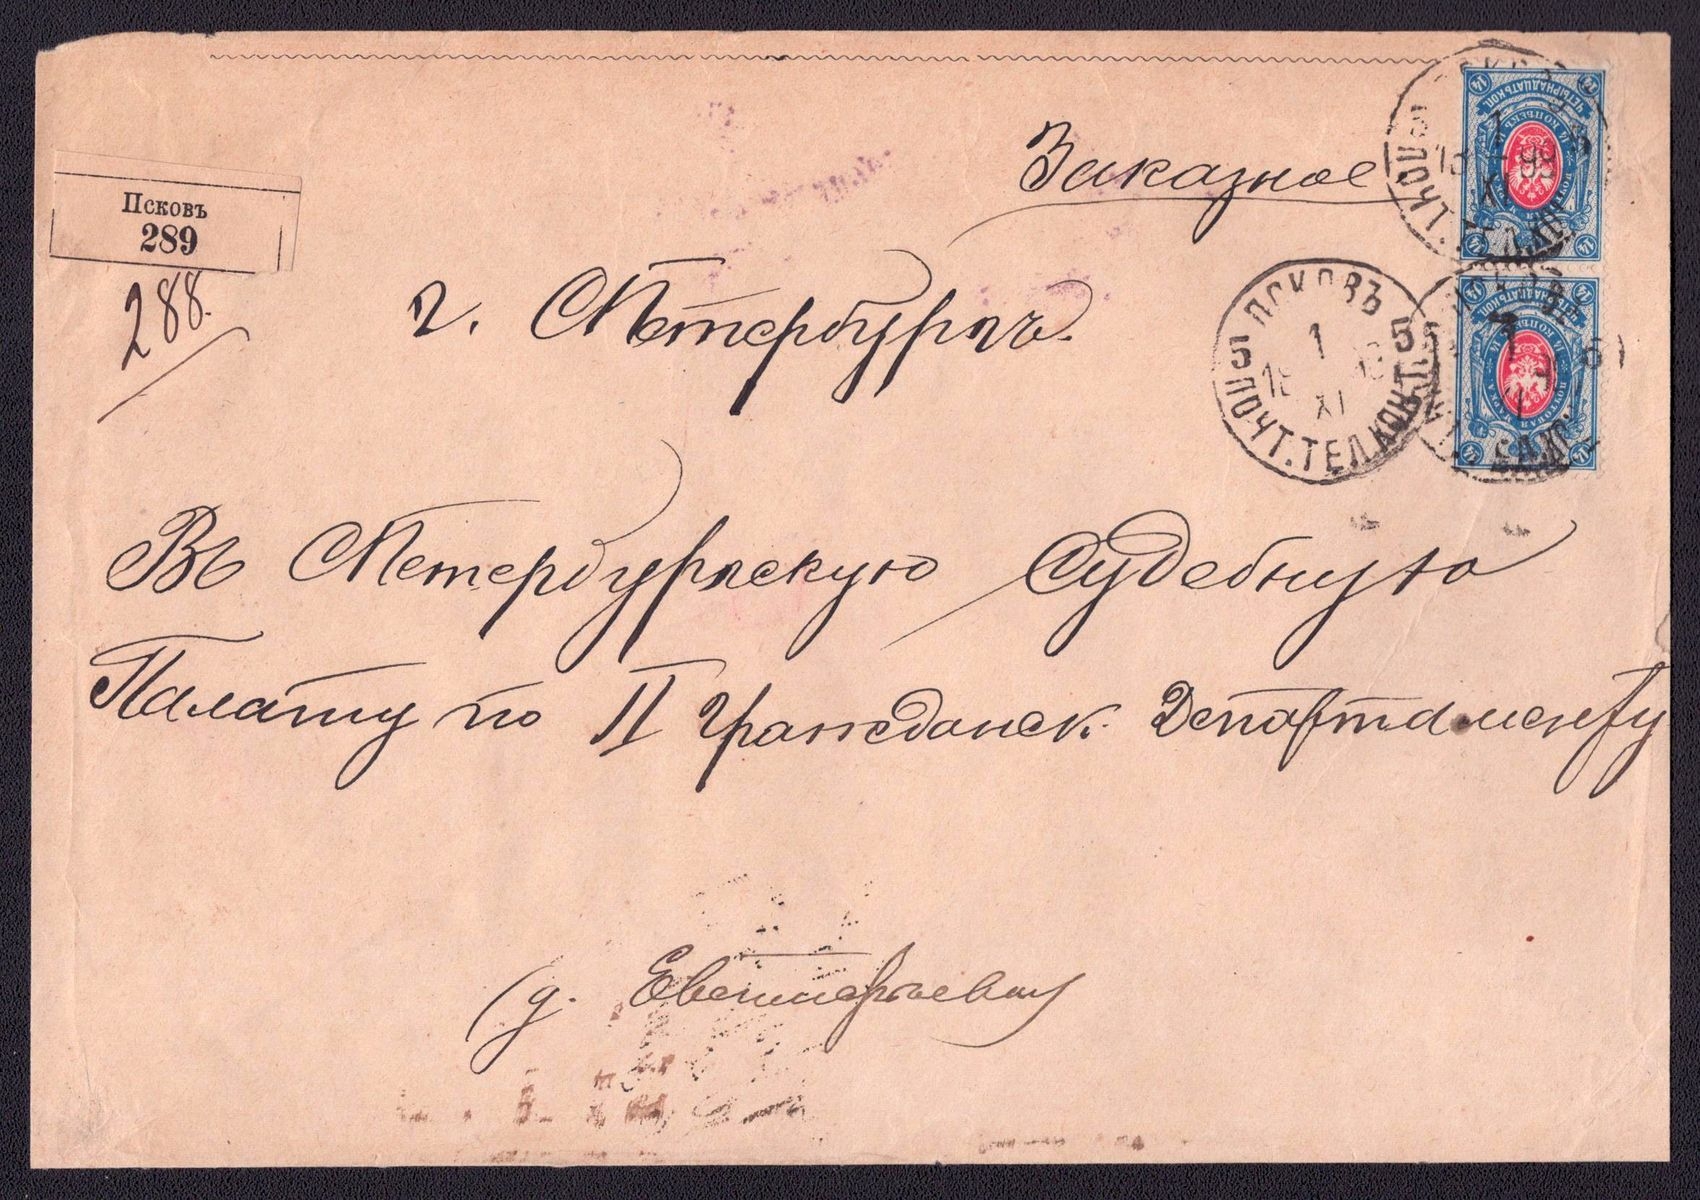 Заказное
Псковъ
289
288.
г. СПетербургъ.
ПСКОВЪ
5 1 5
XI
ПОЧТ. ТЕЛ. КОНТ.
Въ СПетербургскую Судебную
Палату по II Гражданск. Департаменту